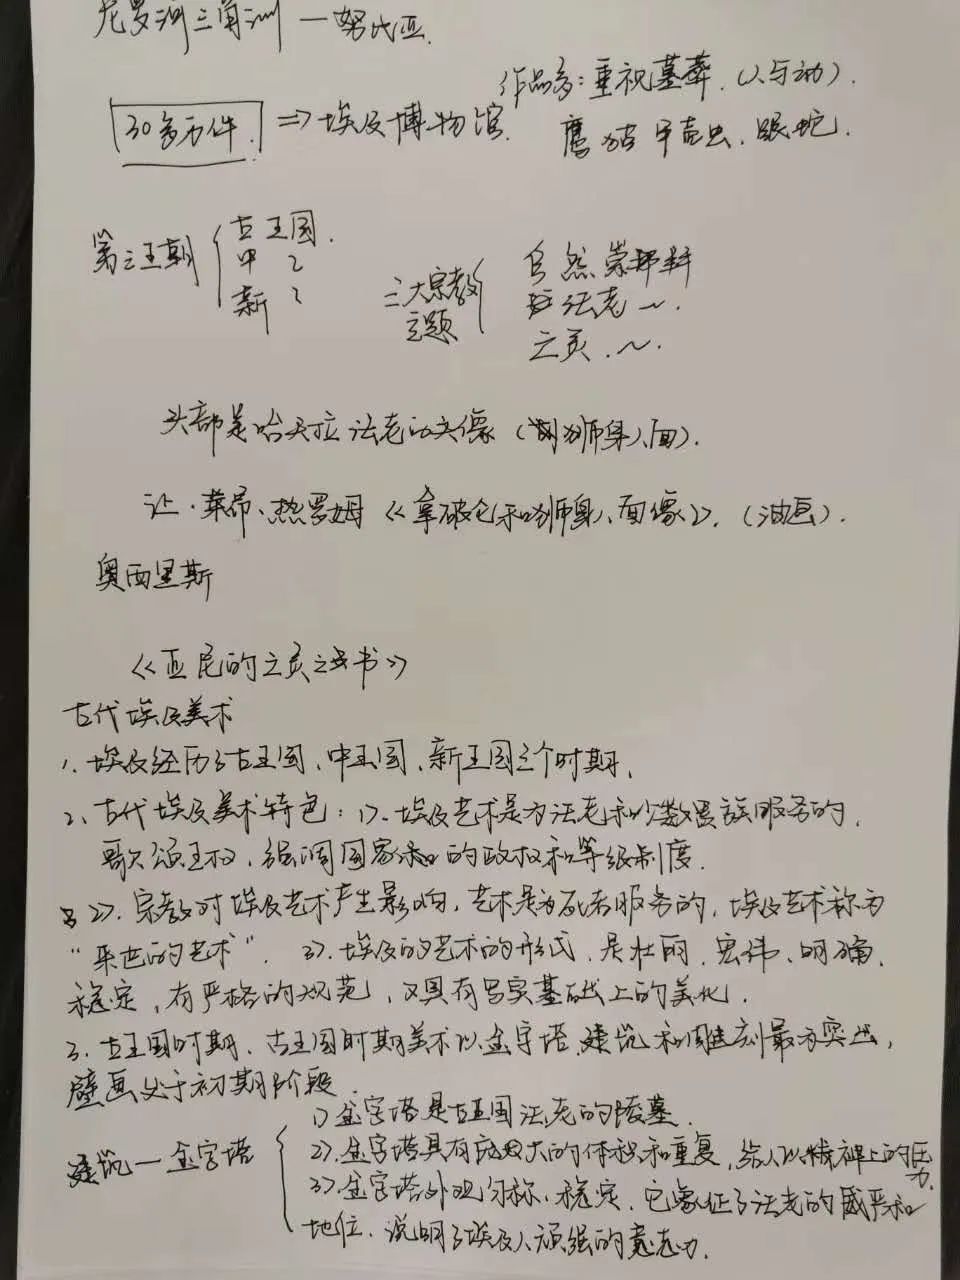 尼罗河三角洲 — 努比亚.
作品多：重视墓葬.（人与动）.
30多万件. ⇒ 埃及博物馆.
鹰 猫 甲壳虫. 眼蛇.
第三王朝 { 古王国. 中 〃 新 〃
三大宗教主题 { 自然崇拜 法老 ~. 亡灵. ~.
头部是哈夫拉法老的头像（狮身人面）.
让·莱昂·热罗姆《拿破仑和狮身人面像》.（油画）.
奥西里斯
《亚尼的亡灵之书》
古代埃及美术
1、埃及经历了古王国、中王国、新王国三个时期.
2、古代埃及美术特色：1>. 埃及艺术是为法老和少数贵族服务的.
歌颂王权，强调国家的政权和等级制度.
2>. 宗教对埃及艺术产生影响，艺术是为死者服务的，埃及艺术称为
“来世的艺术”. 3>. 埃及的艺术的形式，是壮丽、宏伟、明确、
稳定，有严格的规范，又具有写实基础上的美化.
3、古王国时期、古王国时期美术以金字塔建筑和雕刻最为突出，
壁画处于初期阶段
建筑—金字塔 { 1> 金字塔是古王国法老的陵墓.
2>. 金字塔具有大的体积和重复，给人以精神上的压力.
3>. 金字塔外观匀称、稳定，它象征了法老的威严和
地位，说明了埃及人顽强的意志力.